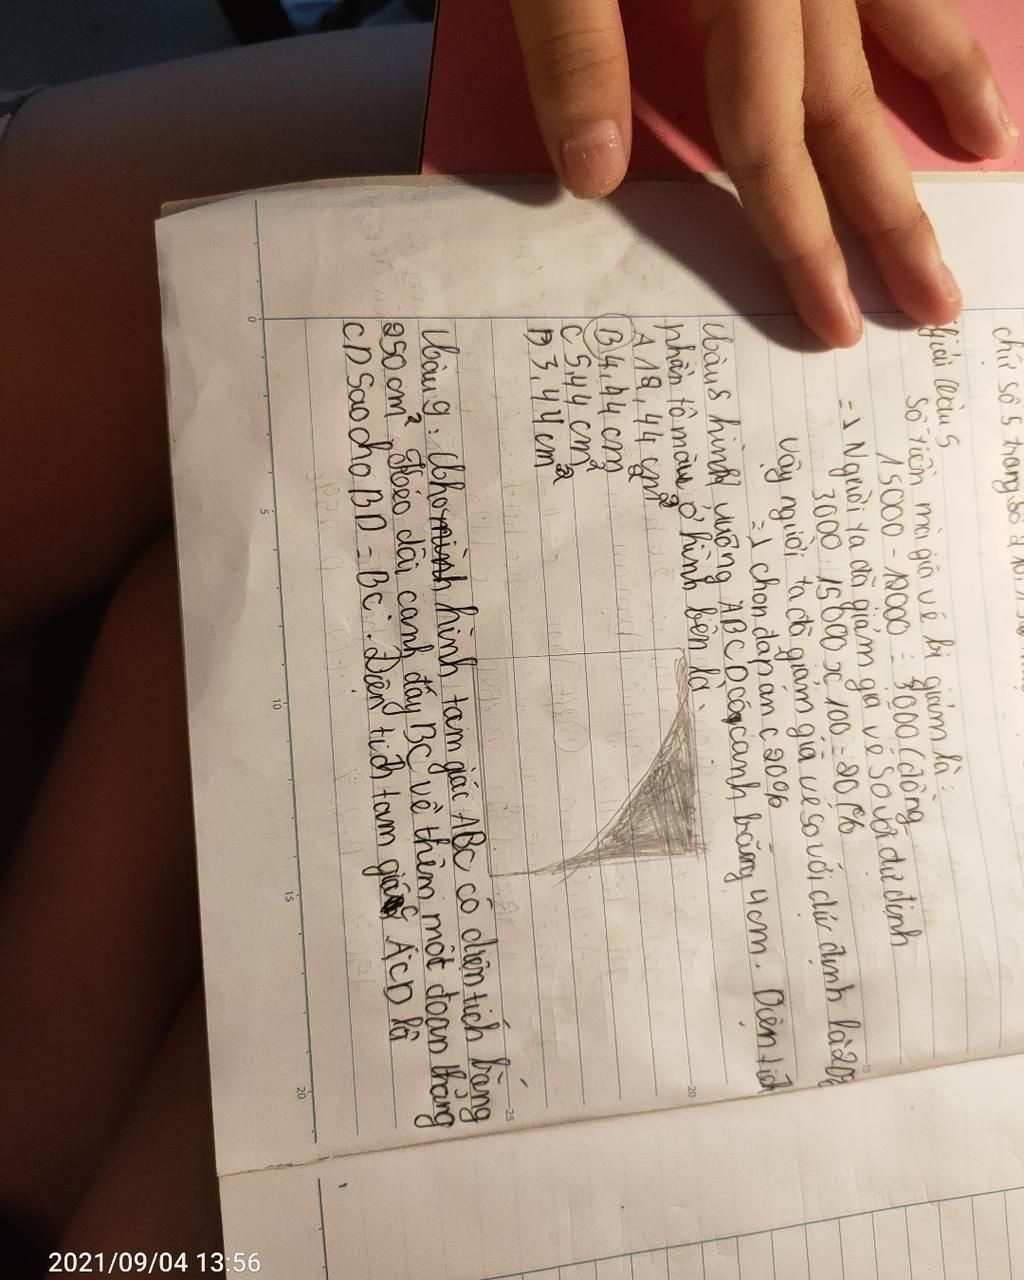 chữ số 5 trong số
Giải Câu 5
Số tiền mà giá vé bị giảm là:
15000 - 12000 = 3000 (đồng
=> Người ta đã giảm giá vé so với dự định
3000 : 15000 x 100 = 20 %
Vậy người ta đã giảm giá vé so với dự định là 20%
=> chọn đáp án C 20%
Câu 8 hình vuông ABCD có cạnh bằng 4cm. Diện tích
phần tô màu ở hình bên là
A 18,44 cm²
B 4,44 cm
C 5,44 cm²
D 3,44 cm²
Câu 9: Cho hình tam giác ABC có diện tích bằng
250 cm². Kéo dài cạnh đáy BC về thêm một đoạn thẳng
CD sao cho BD = BC. Diện tích tam giác ACD là
0
5
10
15
20
15
20
25
2021/09/04 13:56